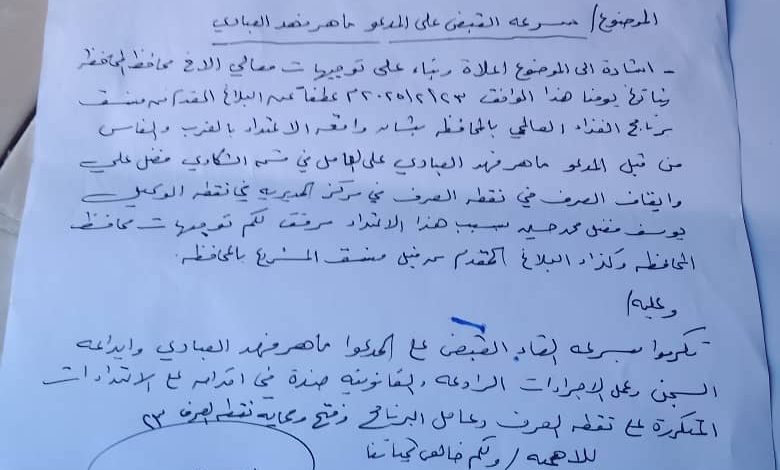 الموضوع/ سرعه القبض على المدعو ماهر فهد العبادي
- اشارة الى الموضوع اعلاة وبناء على توجيهات معالي الاخ محافظ المحافظه
بتاريخ يومنا هذا الموافق ٢٣/٢/٢٠٢٥م عطفا عن البلاغ المقدم من منسق
برنامج الغذاء العالمي بالمحافظه بشان واقعه الاعتداء بالضرب والفاس
من قبل المدعو ماهر فهد العبادي على العامل في قسم الشكاوي فضل علي
وايقاف الصرف في نقطه الصرف في مركز المديريه في نقطه الوكيل
يوسف فضل محمد حسين بسبب هذا الاعتداء مرفق لكم توجيهات محافظ
المحافظه وكذاء البلاغ المقدم من قبل منسق المشروع بالمحافظه.
وعليه/
تكرموا بسرعه القاء القبض على المدعوا ماهر فهد العبادي وايداعه
السجن وعمل الاجرادات الرادعه والقانونيه ضدة في اقدامه على الاعتداءات
المتكررة على نقطه الصرف وعامل البرنامج وفتح وحماية نقطه الصرف ٢٣
للاهميه / ولكم خالص تحياتنا